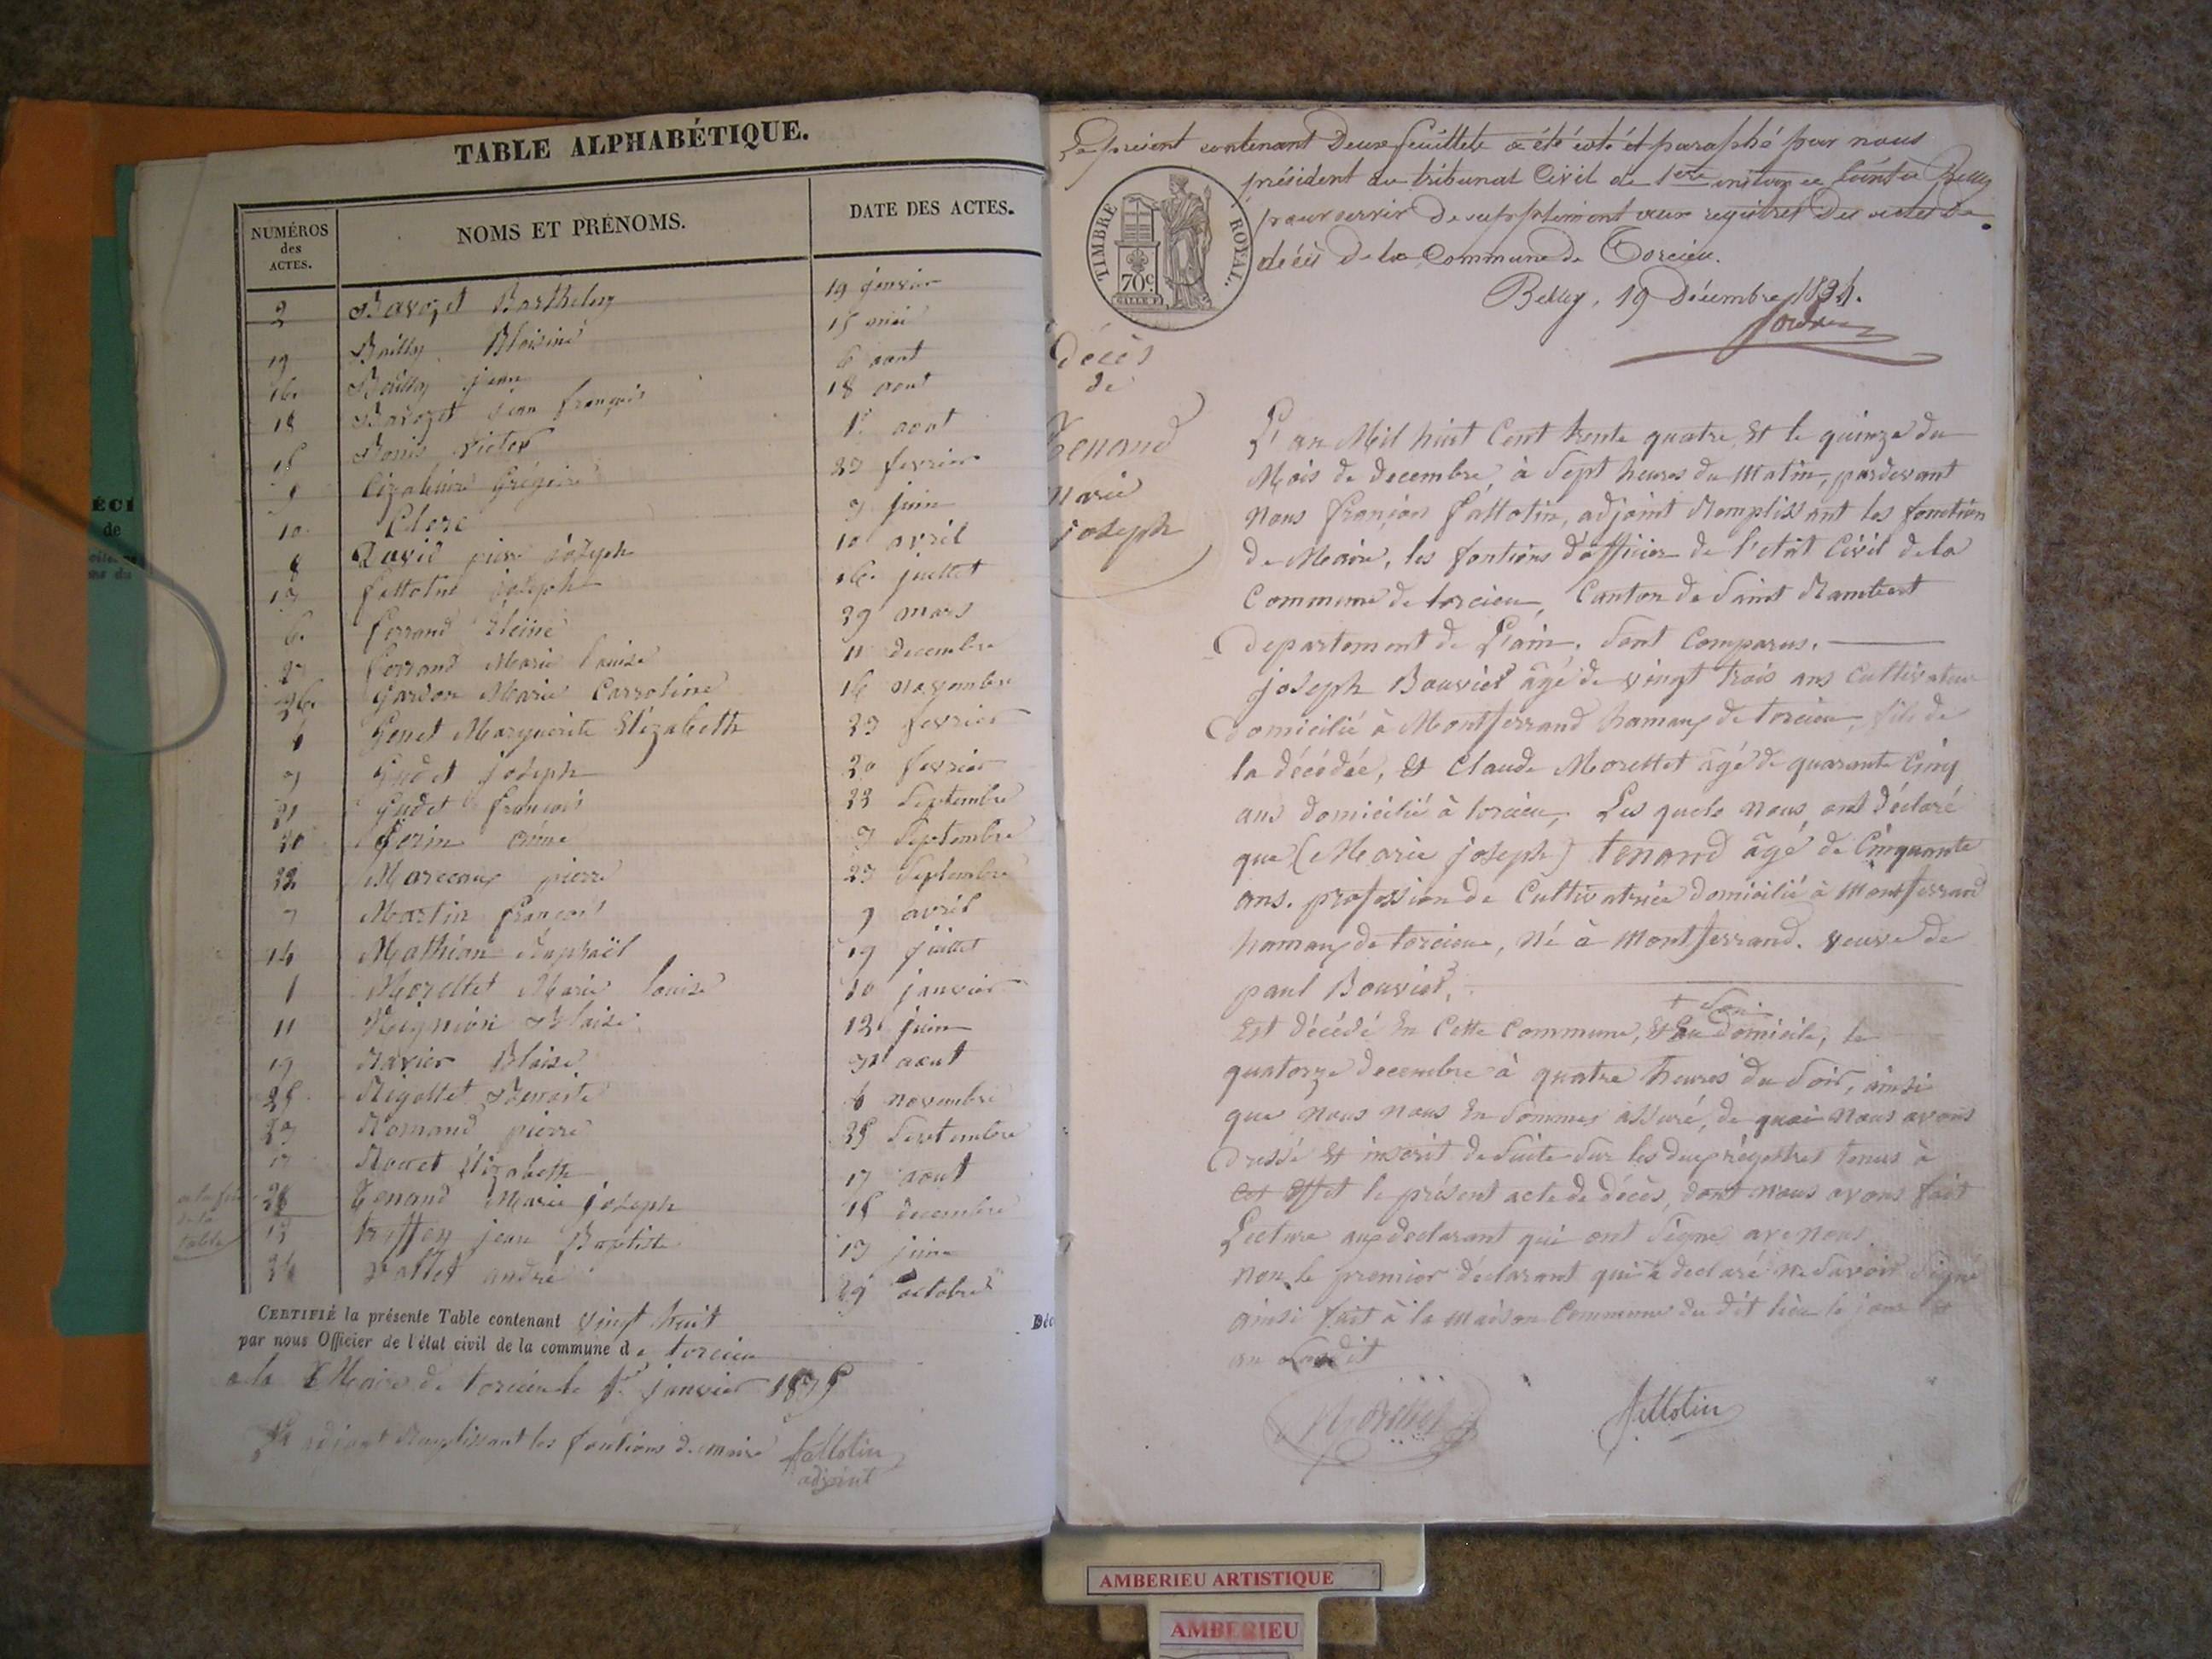 ÉCI
de
TABLE ALPHABÉTIQUE.
NUMÉROS des ACTES.
NOMS ET PRÉNOMS.
DATE DES ACTES.
2 Bavozet Barthelmy 19 janvier
Bailly 15 mai
16. Bailly jean 6 aout
18 Bavozet Jean françois 18 aout
15 Bonis victor 1er aout
Grégoire 27 fevrier
10 Clerc 7 juin
8 David pierre joseph 10 avril
13 fattotin joseph 16 juillet
6. ferrand 29 mars
27 ferrand Marie louise 11 decembre
26. Marie Carroline 16 novembre
Genet Marguerite Elizabeth 23 fevrier
Gudet joseph 20 fevrier
21 Gudet françois 23 Septembre
20 7 Septembre
22 pierre 23 Septembre
7 Martin françois 9 avril
14 Mathian Raphaël 19 juillet
1 Morettet Marie louise 10 janvier
11 Blaise 12 juin
19 Ravier Blaise aout
25 Rigottet 6 novembre
23 Romand pierre 25 Septembre
17 Elizabeth 17 aout
a la fin de la table
28 Tenand Marie joseph 15 decembre
13 jean Baptiste 13 juin
24 Vallet andré 29 octobre
CERTIFIÉ la présente Table contenant vingt huit
par nous Officier de l'état civil de la commune de torcieu
a la Mairie de torcieu le 1er janvier 1835
adjoint Remplissant les fontions de maire fattotin
adjoint
Le présent contenant Deux feuillets a été coté et paraphé par nous
président du tribunal Civil de 1ere instance séant à Belley
pour servir de supplément aux registres des actes de
décès de la Commune de Torcieu.
Belley, 19 Décembre 1834.
TIMBRE ROYAL.
70c.
décès
de
Tenand
Marie
joseph
L'an Mil huit Cent trente quatre et le quinze du
Mois de decembre, à Sept heures du Matin, pardevant
nous françois fattotin, adjoint Remplissant les fonction
de Maire, les fontions d'officier de l'etat Civil de la
Commune de torcieu, Canton de Saint Rambert
departement de L'ain. Sont Comparus.
joseph Bouvier âgé de vingt trois ans Cultivateur
domicilié à Montferrand hamaux de torcieu, fils de
la décédée, et Claude Morettet âgé de quarante Cinq
ans domicilié à torcieu, Les quels nous ont déclaré
que (Marie joseph) tenand âgé de Cinquante
ans. profession de Cultivatrice domicilié à Montferrand
hamaux de torcieu, né à Montferrand. veuve de
paul Bouvier,
+ Son
Est décédé en Cette Commune, et domicile, le
quatorze decembre à quatre heures du Soir, ainsi
que nous nous en Sommes assuré, de quoi nous avons
dressé et inscrit de Suite Sur les deux régistres tenus à
Cet effet le présent acte de décès, dont nous avons fait
Lecture aux declarant qui ont Signé ave nous
non le premier déclarant qui a declaré ne Savoir Signé
ainsi fait à la maison Commune du dit lieu le jour et
an Susdit
Morettet
fattotin
Déc
AMBERIEU ARTISTIQUE
AMBERIEU